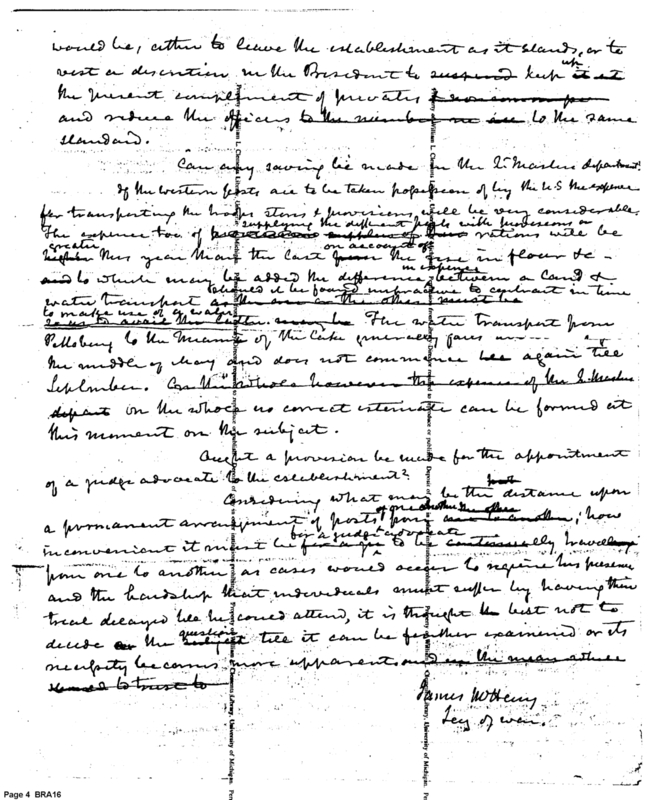 would be, either to leave the establishment as it stands, or to
vest a discretion in the President to suspend keep up it at
the present complement of privates
and reduce the officers to the number to the same
standard.
Can any saving be made in the Qr Masters department.
If the western posts are to be taken possession of by the U S the expence
for transporting the troops stores & provisions will be very considerable.
The expence too of supplying the different posts with provisions or rations will be
greater this year than the last from on account of the rise in flour &c
and to which may be added the difference in expence between a land &
water transport should it be found impracticable to contract in time
to make use of a water
so as to avail the latter. may be The water transport from
Pittsburg to the Miami of the Lake generally
the middle of May and does not commence again till
September. On the whole however the expence of the Q Master
depart on the whole no correct estimate can be formed at
this moment on the subject.
Ought a provision be made for the appointment
of a judge advocate to the establishment?
Considering what may be the distance upon
a permanent arrangement of posts from one to another; how
inconvenient it must be for a judge advocate to be continually travelling
from one to another as cases would occur to require his presence
and the hardship that individuals must suffer by having their
trial delayed till he could attend, it is thought best not to
decide on the question subject till it can be further examined or its
necessity becomes more apparent. and in the mean while
to trust to
James McHenry
Secy of war.
William L. Clements Library, University of Michigan.
Page 4 BRA16